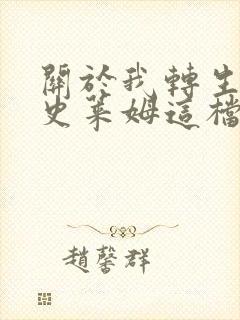 關於我轉生
史萊姆這檔
趙馨群